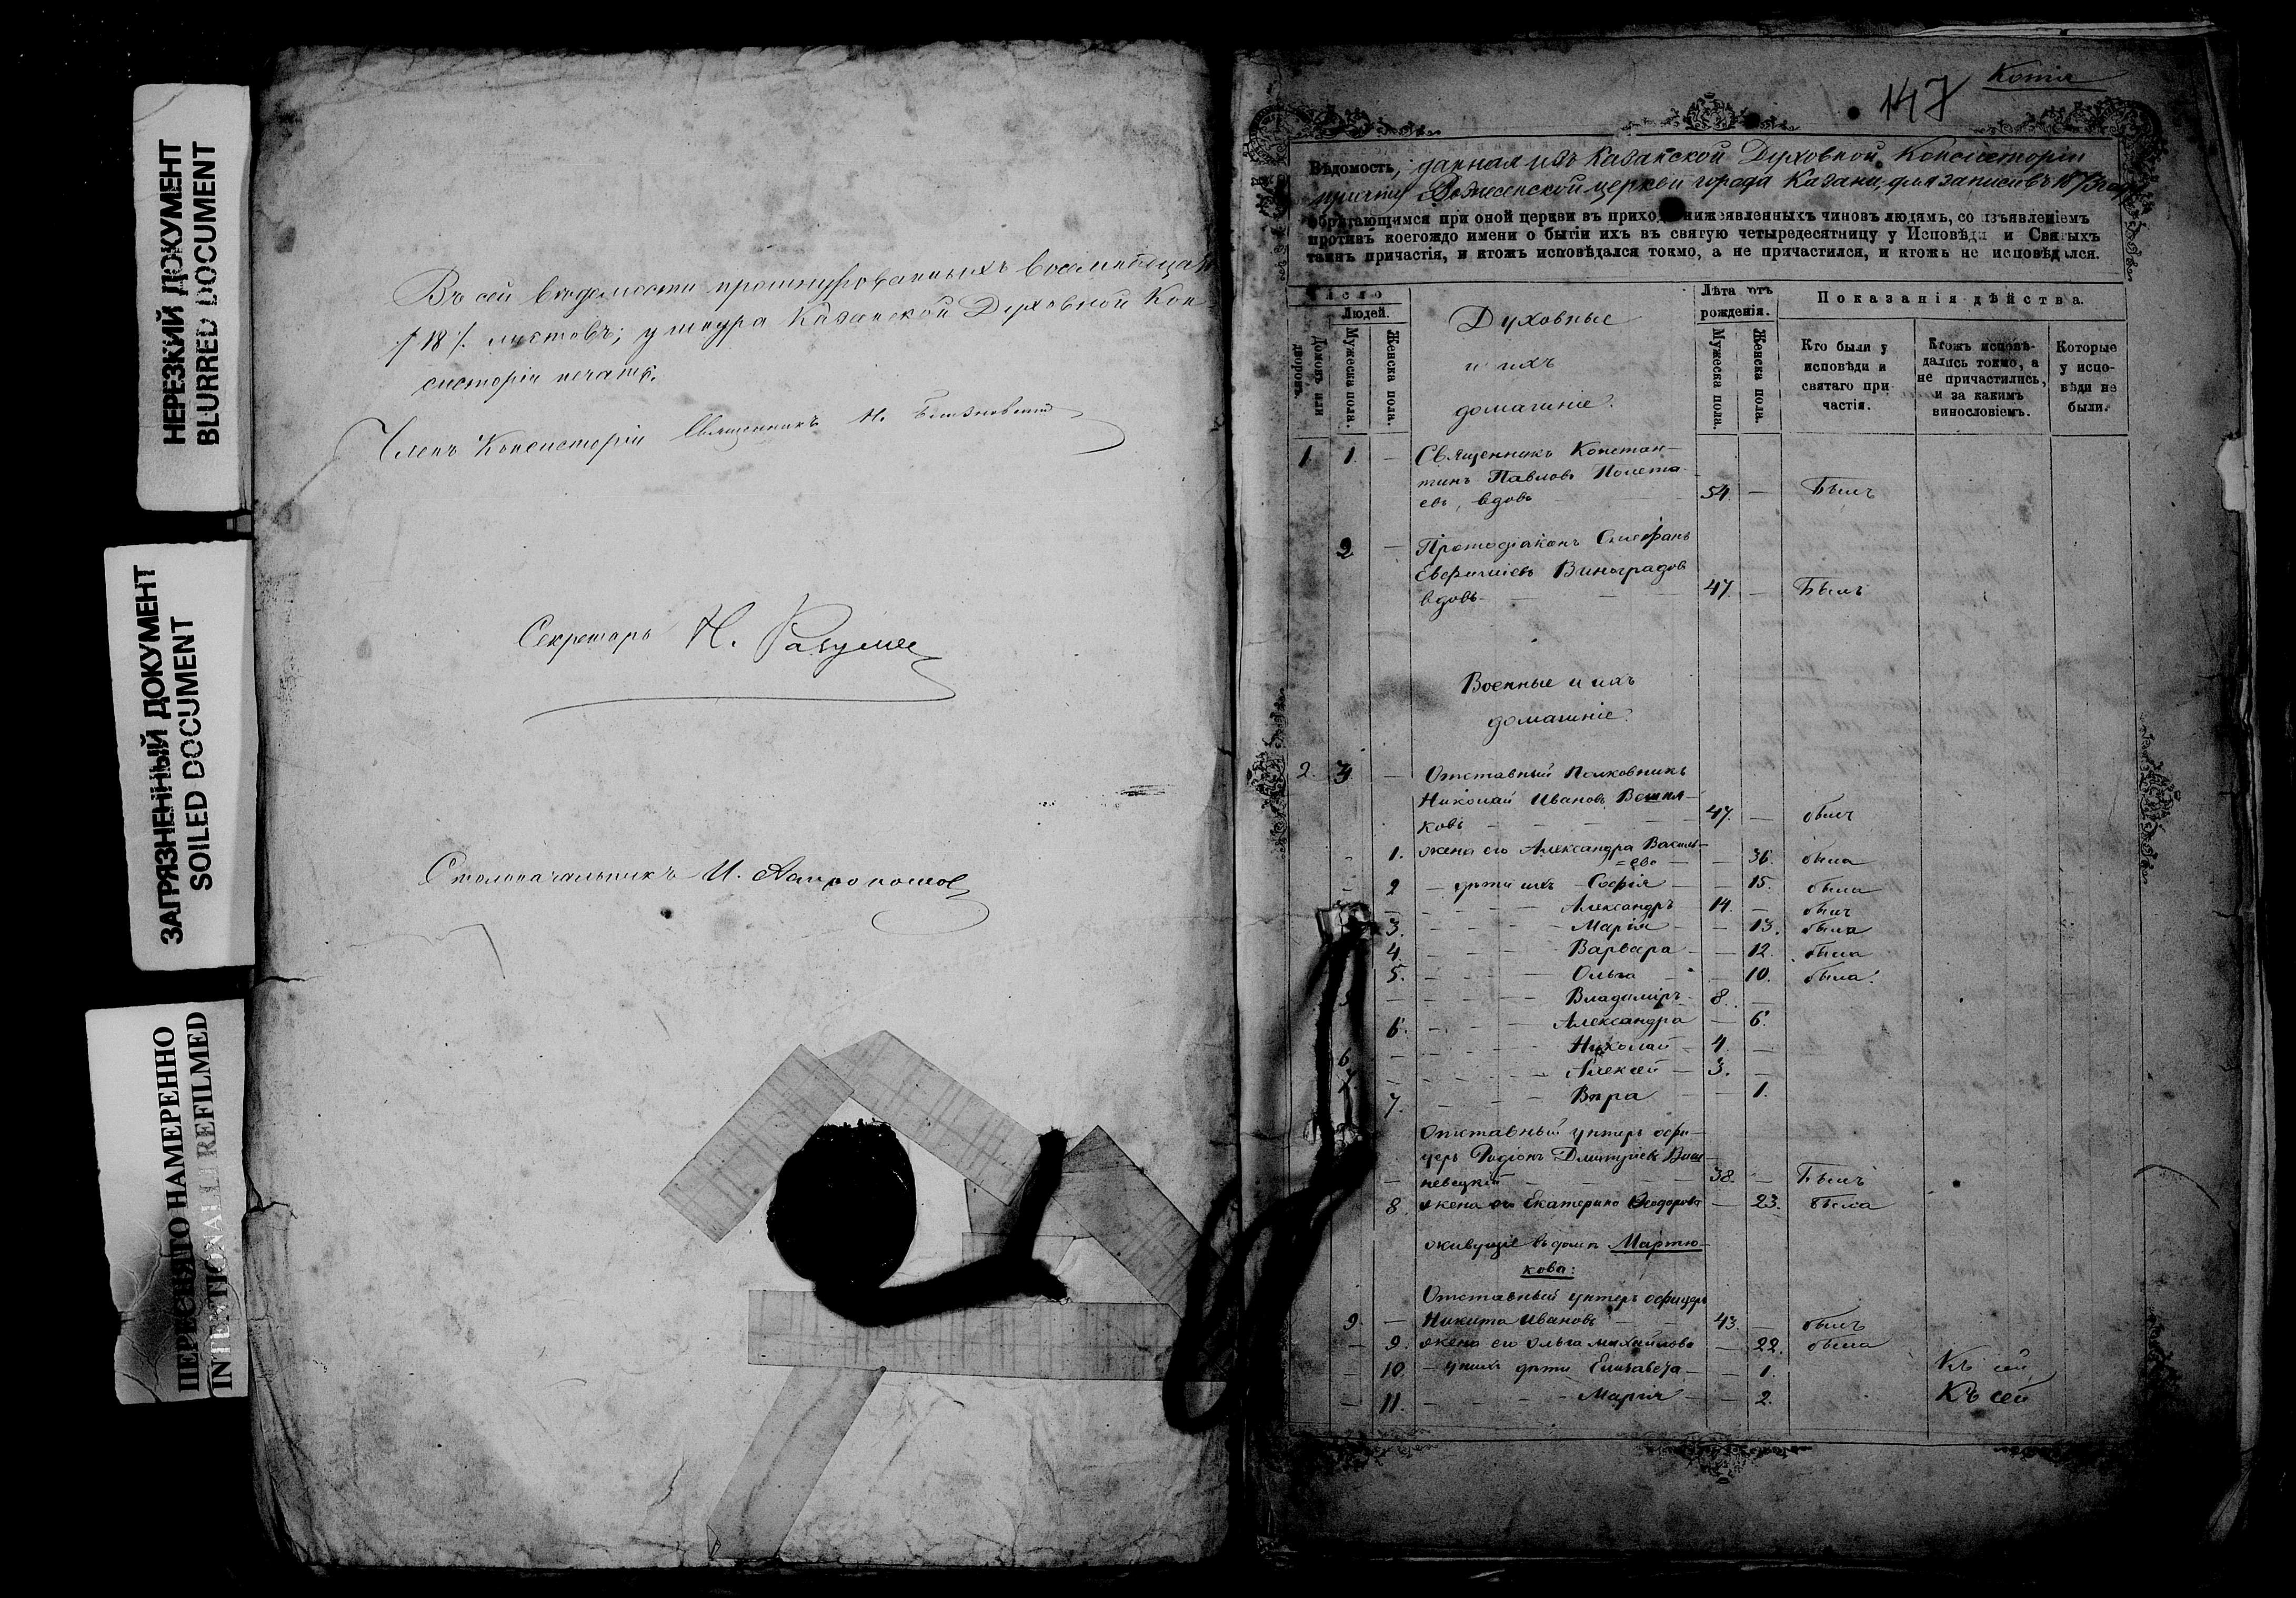 НЕРЕЗКИЙ ДОКУМЕНТ
BLURRED DOCUMENT
ЗАГРЯЗНЕННЫЙ ДОКУМЕНТ
SOILED DOCUMENT
ПЕРЕСНЯТО НАМЕРЕННО
INTENTIONALLI REFILMED
Въ сей вѣдомости прошнурованныхъ восемнадцать
/18/. листовъ; у шнура Казанской Духовной Кон
систоріи печать.
Членъ Консисторіи Священникъ Н.
Секретарь Н. Разумов
Столоначальникъ И.
Копія
147
Вѣдомость, данная изъ Казанской Духовной Консисторіи
причту церкви города Казани для записи въ 1873 году
обрѣтающимся при оной церкви въ приходѣ нижеявленныхъ чиновъ людямъ, со изъявленіемъ
противъ коегождо имени о бытіи ихъ въ святую четыредесятницу у Исповѣди и Святыхъ
таинъ причастія, и ктожъ исповѣдался токмо, а не причастился, и ктожъ не исповѣдался.
Число
Людей.
Домовъ или дворовъ.
Мужеска пола.
Женска пола.
Духовные
и ихъ
домашніе.
Лѣта отъ рожденія.
Мужеска пола.
Женска пола.
Показанія дѣйства.
Кто были у исповѣди и святаго причастія.
Ктожъ исповѣдались токмо, а не причастились, и за какимъ винословіемъ.
Которые у исповѣди не были.
1. 1. — Священникъ Констан-
тинъ Павловъ Полета-
евъ, вдовъ 54. — Былъ
2 — Протодіаконъ Стефанъ
Евфиміевъ Виноградов
вдовъ — 47. — Былъ
Военные и ихъ
домашніе.
2. 3 — Отставный Полковникъ
Николай Ивановъ Вешня-
ковъ — 47. — былъ
1. жена его Александра Василь-
=ева — — 36. была
2 — дѣти ихъ — Софія — — 15. была
Александръ 14. — былъ
3. Марія — 13. была
4. Варвара — 12. была
5. Ольга — 10. была.
Владиміръ 8. —
6. Александра — 6.
6 Николай 4. —
7 Алексѣй — 3. —
7. Вѣра — 1.
Отставный унтеръ офи-
церъ Родіонъ Дмитріевъ Виш-
невецкій — 38. — Былъ
8. жена его Екатерина Ѳеодорова — 23. Была
живущіе въ домѣ Мартю-
кова:
Отставный унтеръ офицеръ
9. — Никита Ивановъ — 43. — былъ
— 9. жена его Ольга Михайлова — 22. была
— 10 — у нихъ дѣти Елизавета — 1. Къ сей
— 11. — Марія — 2. Къ сей